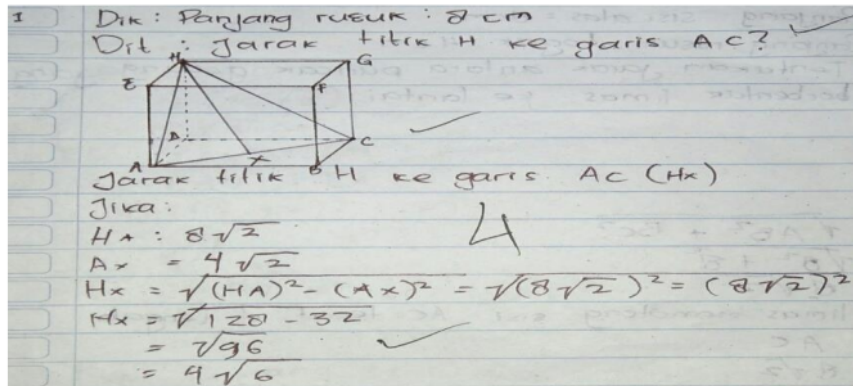 1 Dik : Panjang rusuk : 8 cm
Dit : Jarak titik H ke garis AC?
H G
E F
D C
A X B
Jarak titik H ke garis AC (Hx)
Jika :
HA : 8√2
Ax = 4√2
4
Hx = √(HA)² - (Ax)² = √(8√2)² = (8√2)²
Hx = √128 - 32
= √96
= 4√6